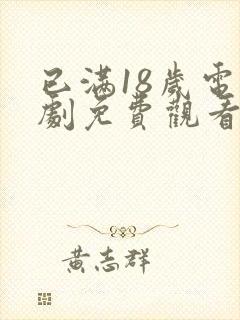 已滿18歲電
劇免費觀看
黃志群